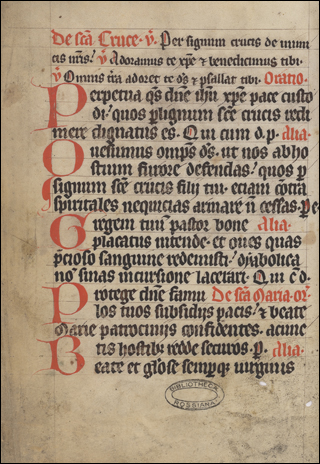 De scā Cruce . ꝟ. Per signum crucis de inimi
cis nr̄is. ꝟ Adoramus te xp̄e ⁊ benedicimus tibi.
ꝟ Omnis t̄ra adoret te ds̄ ⁊ psallat tibi. Oratio.
Perpetua qs̄ dn̄e ih̄u xp̄e pace custo
di. quos ꝑ lignum sc̄e crucis redi
mere dignatus es. Qui cum d. p. alia.
Quesumus omp̄s ds̄. ut nos ab ho
strum furore defendas. quos ꝑ
signum sc̄e crucis filij tui. eciam cōtra
spiritales nequicias armare n̄ cessas. Pe.
Gregem tuū pastor bone Alia.
placatus intende. et oues quas
p̄cioso sanguine redemisti. dyabolica
no sinas incursione lacerari. Qui c̄ d.
Protege dn̄e famu De scā Maria or̄.
los tuos subsidijs pacis. ⁊ beate
Marie patrocinijs confidentes. a cunc
tis hostibꝰ redde securos. ꝑ. Alia.
Beate et gl̓ose semꝑqꝫ uirginis
BIBLIOTHECA
ROSSIANA